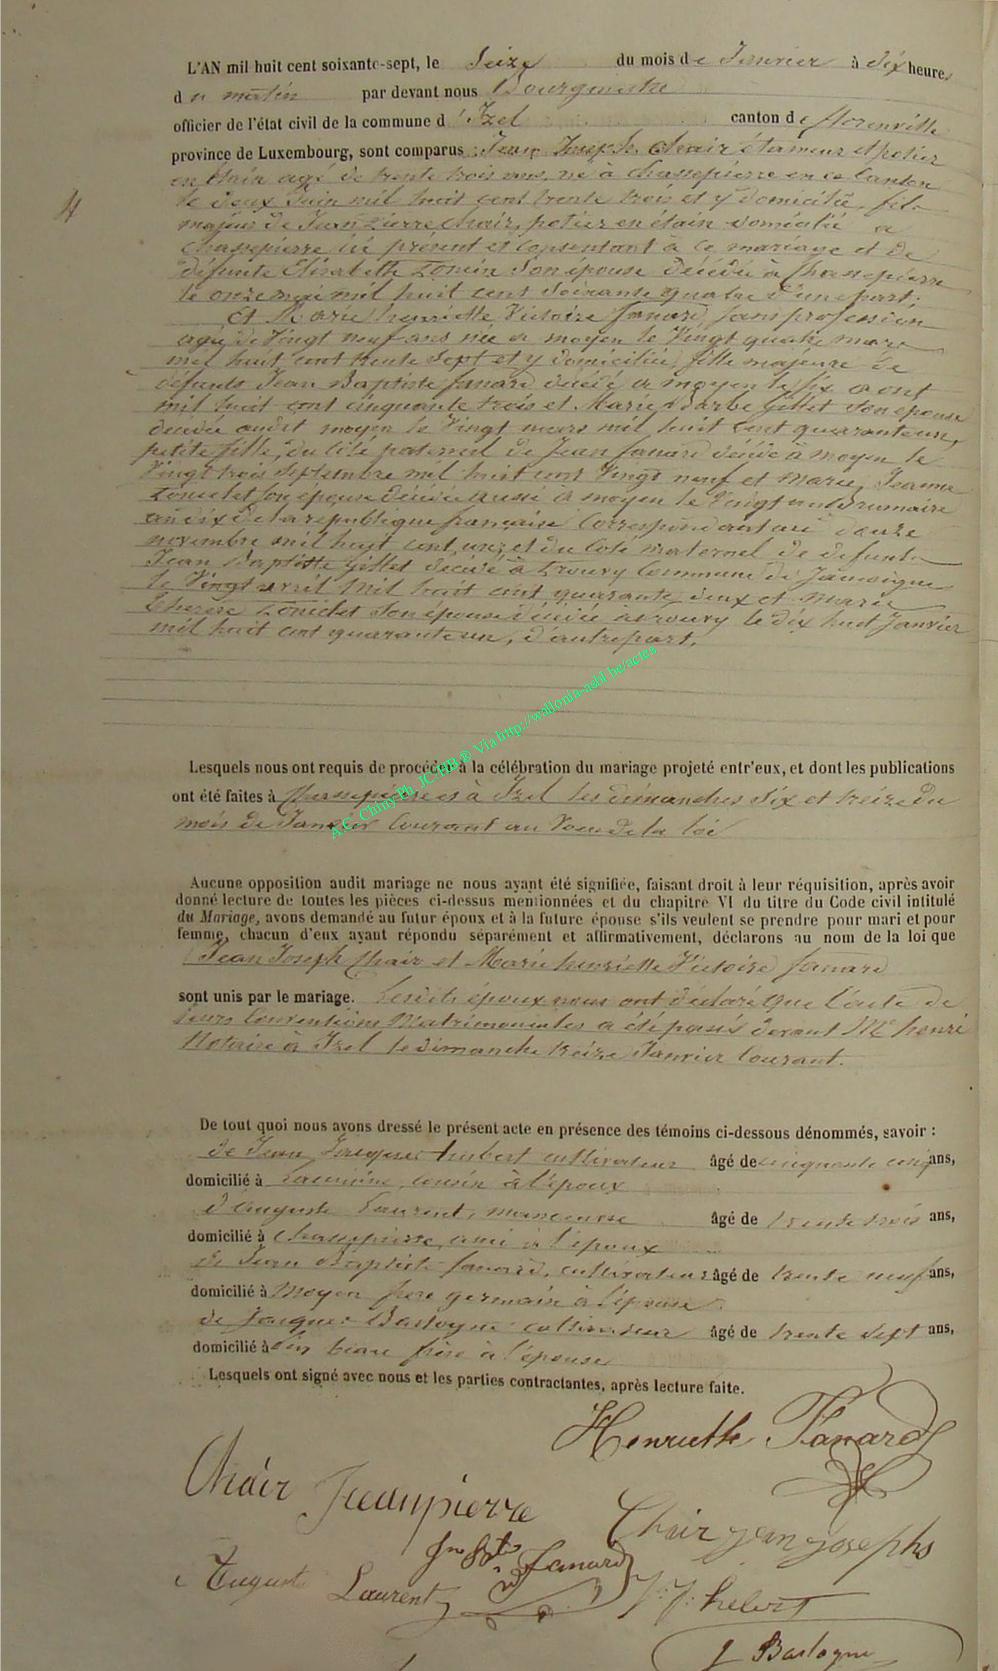 L'AN mil huit cent soixante-sept, le Seize du mois de Janvier à dix heures
du matin par devant nous Bourgmestre
officier de l'état civil de la commune d'Izel canton de florenville
province de Luxembourg, sont comparus : Jean Joseph Chair étameur et potier
en étain agé de trente trois ans, né à Chassepierre en ce Canton
le deux Juin mil huit cent trente trois et y domicilié, fils
majeur de Jean Pierre Chair, potier en étain domicilié a
Chassepierre ici présent et consentant a ce mariage et de
défunte Elisabeth son épouse décédée à Chassepierre
le onze mai mil huit cent soixante quatre d'une part;
Et Marie henriette Victoire fanard, sans profession
agée de Vingt neuf ans née a moyen le Vingt quatre mars
mil huit cent trente sept et y domiciliée, fille majeure de
défunts Jean Baptiste fanard décédé a moyen le six aout
mil huit cent cinquante trois et Marie Barbe Gillet son épouse
décédée audit moyen le Vingt mars mil huit cent quarante un,
petite fille, du côté paternel de Jean fanard décédé à moyen le
Vingt trois Septembre mil huit cent Vingt neuf et Marie Jeanne
son épouse décédée aussi à moyen le Vingt un Brumaire
an dix de la république française Correspondant au douze
novembre mil huit cent un, et du Coté maternel de défunts
Jean Baptiste Gillet décédé à Prouvy Commune de Jamoigne
le Vingt avril Mil huit cent quarante deux et Marie
Therese son épouse décédée à Prouvy le dix huit Janvier
mil huit cent quarante un, d'autre part.
4
A.C. Chiny Ph. JC-HB.® Via http://wallonia-asbl.be/actes
Lesquels nous ont requis de procéder à la célébration du mariage projeté entr'eux, et dont les publications
ont été faites à Chassepierre et à Izel les dimanches Six et treize du
mois de Janvier Courant au Voeu de la loi
Aucune opposition audit mariage ne nous ayant été signifiée, faisant droit à leur réquisition, après avoir
donné lecture de toutes les pièces ci-dessus mentionnées et du chapitre VI du titre du Code civil intitulé
du Mariage, avons demandé au futur époux et à la future épouse s'ils veulent se prendre pour mari et pour
femme, chacun d'eux ayant répondu séparément et affirmativement, déclarons au nom de la loi que
Jean Joseph Chair et Marie henriette Victoire fanard
sont unis par le mariage. Lesdits époux nous ont déclaré que l'acte de
leurs Conventions Matrimoniales a été passé devant Me henri
Notaire à Izel le dimanche treize Janvier Courant.
De tout quoi nous avons dressé le présent acte en présence des témoins ci-dessous dénommés, savoir :
de Jean Jacques hubert cultivateur âgé de cinquante cinq ans,
domicilié à cousin à l'époux
d'Auguste Laurent, âgé de trente trois ans,
domicilié à Chassepierre, ami à l'époux
de Jean Baptiste fanard, cultivateur âgé de trente neuf ans,
domicilié à Moyen frere germain à l'épouse
de Jacques Bastogne cultivateur âgé de trente sept ans,
domicilié à beau frère à l'épouse
Lesquels ont signé avec nous et les parties contractantes, après lecture faite.
Henriette Fanard
Chair Jeanpierre
Chair jean josephs
Jn Bte Fanard
Auguste Laurent
J: J: hebert
J Bastogne